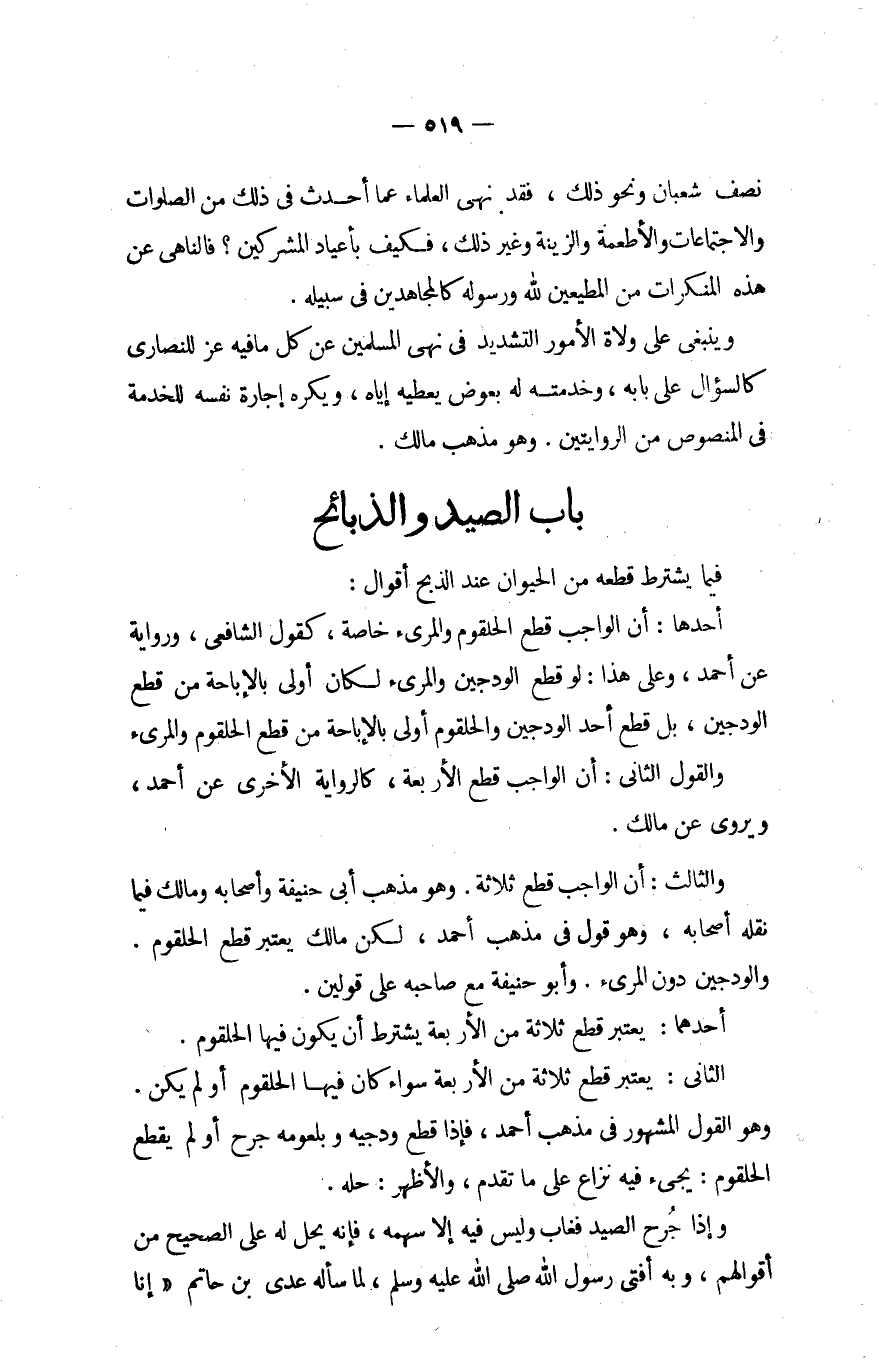 — ٥١٩ —
نصف شعبان ونحو ذلك ، فقد نهى العلماء عما أحـدث فى ذلك من الصلوات
والاجتماعات والأطعمة والزينة وغير ذلك ، فـكيف بأعياد المشركين ؟ فالناهى عن
هذه المنـكرات من المطيعين لله ورسوله كالمجاهدين فى سبيله .
وينبغى على ولاة الأمور التشديد فى نهى المسلمين عن كل مافيه عز للنصارى
كالسؤال على بابه ، وخدمتــه له بعوض يعطيه إياه ، ويكره إجارة نفسه للخدمة
فى المنصوص من الروايتين . وهو مذهب مالك .
باب الصيد والذبائح
فيما يشترط قطعه من الحيوان عند الذبح أقوال :
أحدها : أن الواجب قطع الحلقوم والمرىء خاصة ، كقول الشافعى ، ورواية
عن أحمد ، وعلى هذا : لو قطع الودجين والمرىء لـكان أولى بالإباحة من قطع
الودجين ، بل قطع أحد الودجين والحلقوم أولى بالإباحة من قطع الحلقوم والمرىء
والقول الثانى : أن الواجب قطع الأربعة ، كالرواية الأخرى عن أحمد ،
ويروى عن مالك .
والثالث : أن الواجب قطع ثلاثة . وهو مذهب أبى حنيفة وأصحابه ومالك فيما
نقله أصحابه ، وهو قول فى مذهب أحمد ، لـكن مالك يعتبر قطع الحلقوم .
والودجين دون المرىء . وأبو حنيفة مع صاحبه على قولين .
أحدهما : يعتبر قطع ثلاثة من الأربعة يشترط أن يكون فيها الحلقوم .
الثانى : يعتبر قطع ثلاثة من الأربعة سواء كان فيهـا الحلقوم أو لم يكن .
وهو القول المشهور فى مذهب أحمد ، فإذا قطع ودجيه وبلعومه جرح أو لم يقطع
الحلقوم : يجىء فيه نزاع على ما تقدم ، والأظهر : حله .
وإذا جُرح الصيد فغاب وليس فيه إلا سهمه ، فإنه يحل له على الصحيح من
أقوالهم ، وبه أفتى رسول الله صلى الله عليه وسلم ، لما سأله عدى بن حاتم « إنا